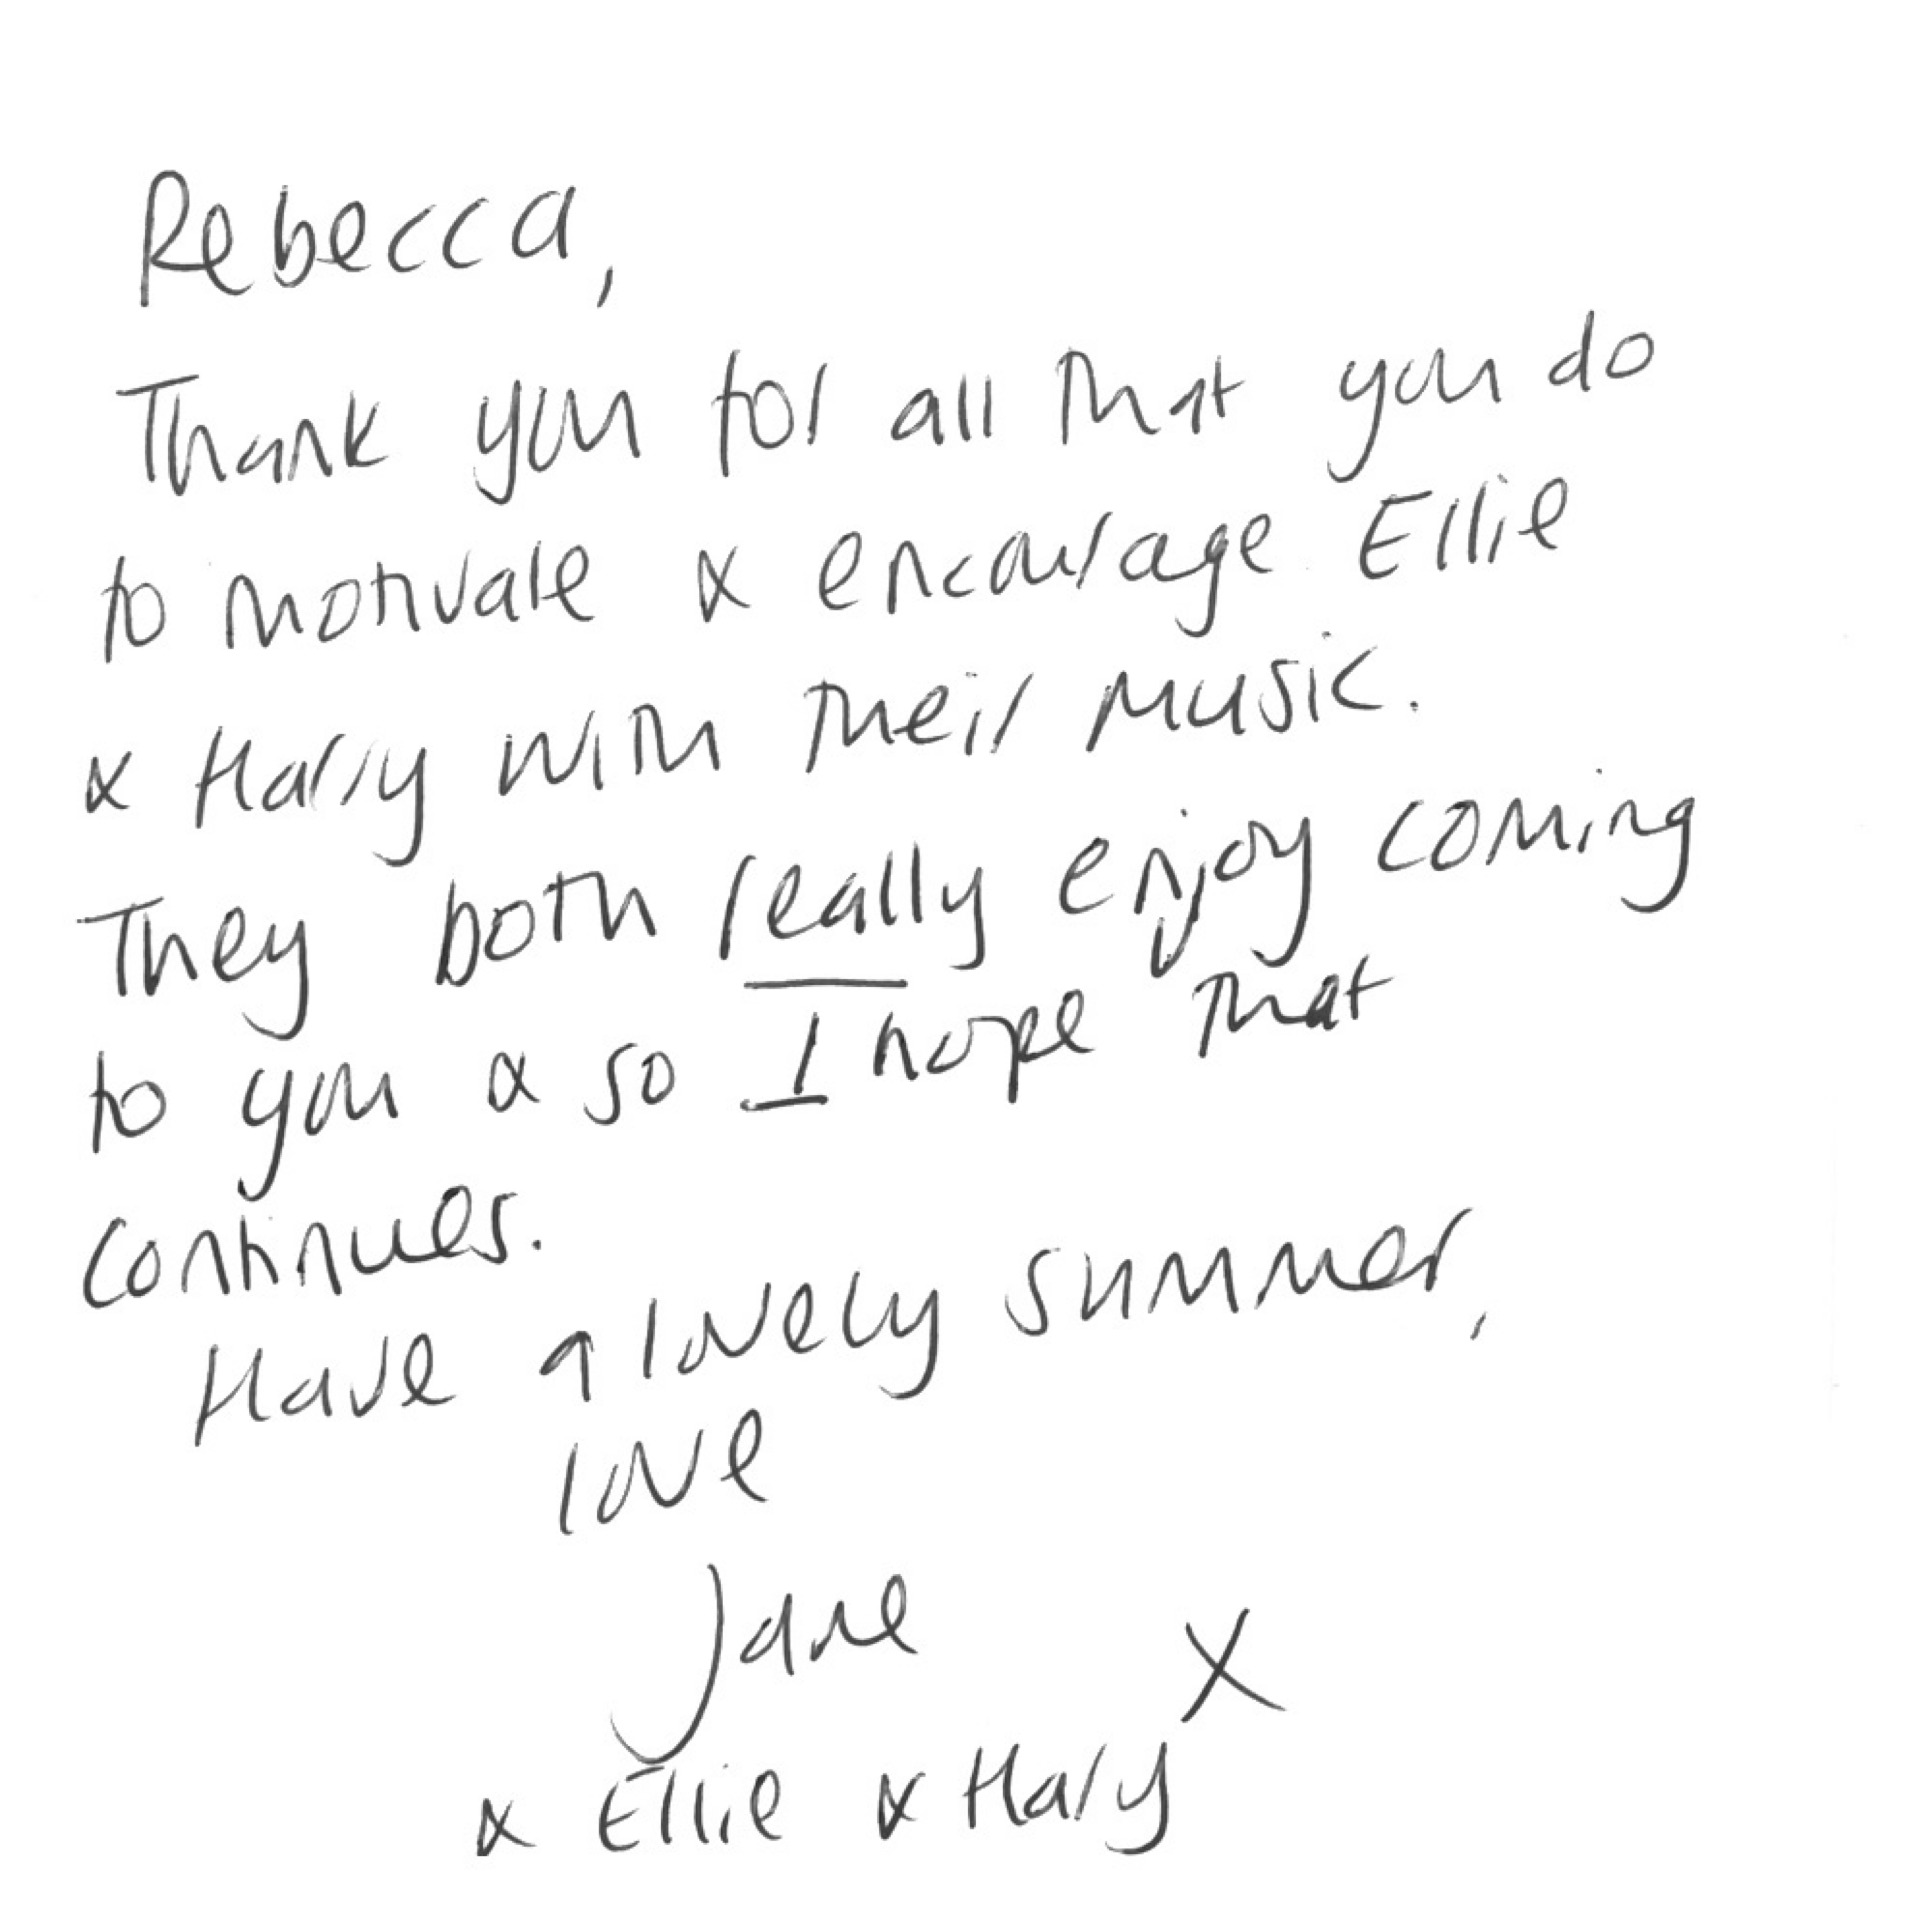 Rebecca,
Thank you for all that you do
to motivate & encourage Ellie
& Harry with their music.
They both really enjoy coming
to you & so I hope that
continues.
Have a lovely summer,
love
Jane
X
& Ellie & Harry